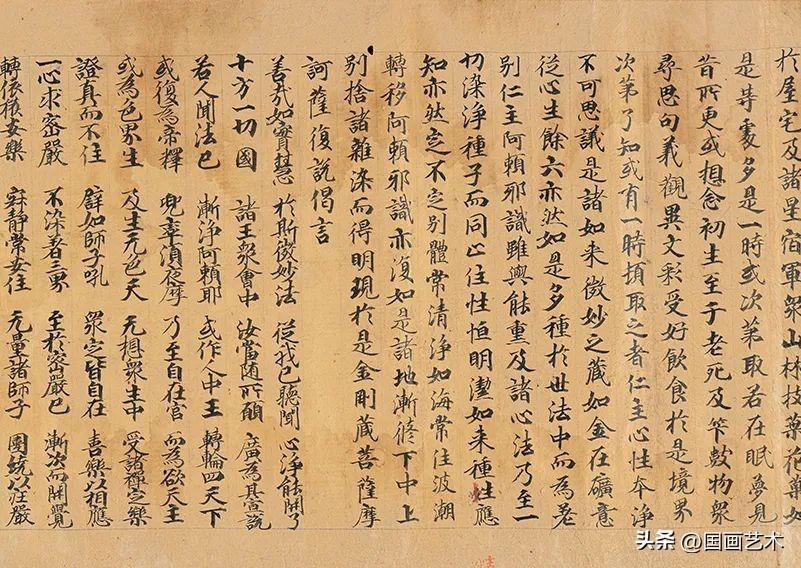 於屋宅及諸星宿軍衆山林枝葉花菓如
是等處多是一時或次第取若在眠夢見
昔所更或想念初生至于老死及筭數物衆
尋思句義觀異文彩受好飲食於是境界
次第了知或有一時頓取之者仁主心性本淨
不可思議是諸如来微妙之藏如金在礦意
從心生餘六亦然如是多種於世法中而為差
別仁主阿賴耶識雖與能熏及諸心法乃至一
切染淨種子而同止住性恒明潔如来種性應
知亦然定不定別體常清淨如海常住波潮
轉移阿賴耶識亦復如是諸地漸脩下中上
別捨諸雜染而得明現於是金剛藏菩薩摩
訶薩復說偈言
善哉如實慧 於斯微妙法 從我已聽聞 心淨能開了
十方一切國 諸王衆會中 汝當随所願 廣為其宣說
若人聞法已 漸淨阿賴耶 或作人中王 轉輪四天下
或復為帝釋 兜率須夜摩 乃至自在宮 而為欲天主
或為色界生 及生无色天 无想衆生中 受諸禪定樂
證真而不住 譬如師子吼 衆定皆自在 喜樂以相應
一心求密嚴 不染著三界 至於密嚴已 漸次而開覺
轉依獲安樂 寂静常安住 无量諸師子 圍繞以莊嚴
头条 @国画艺术